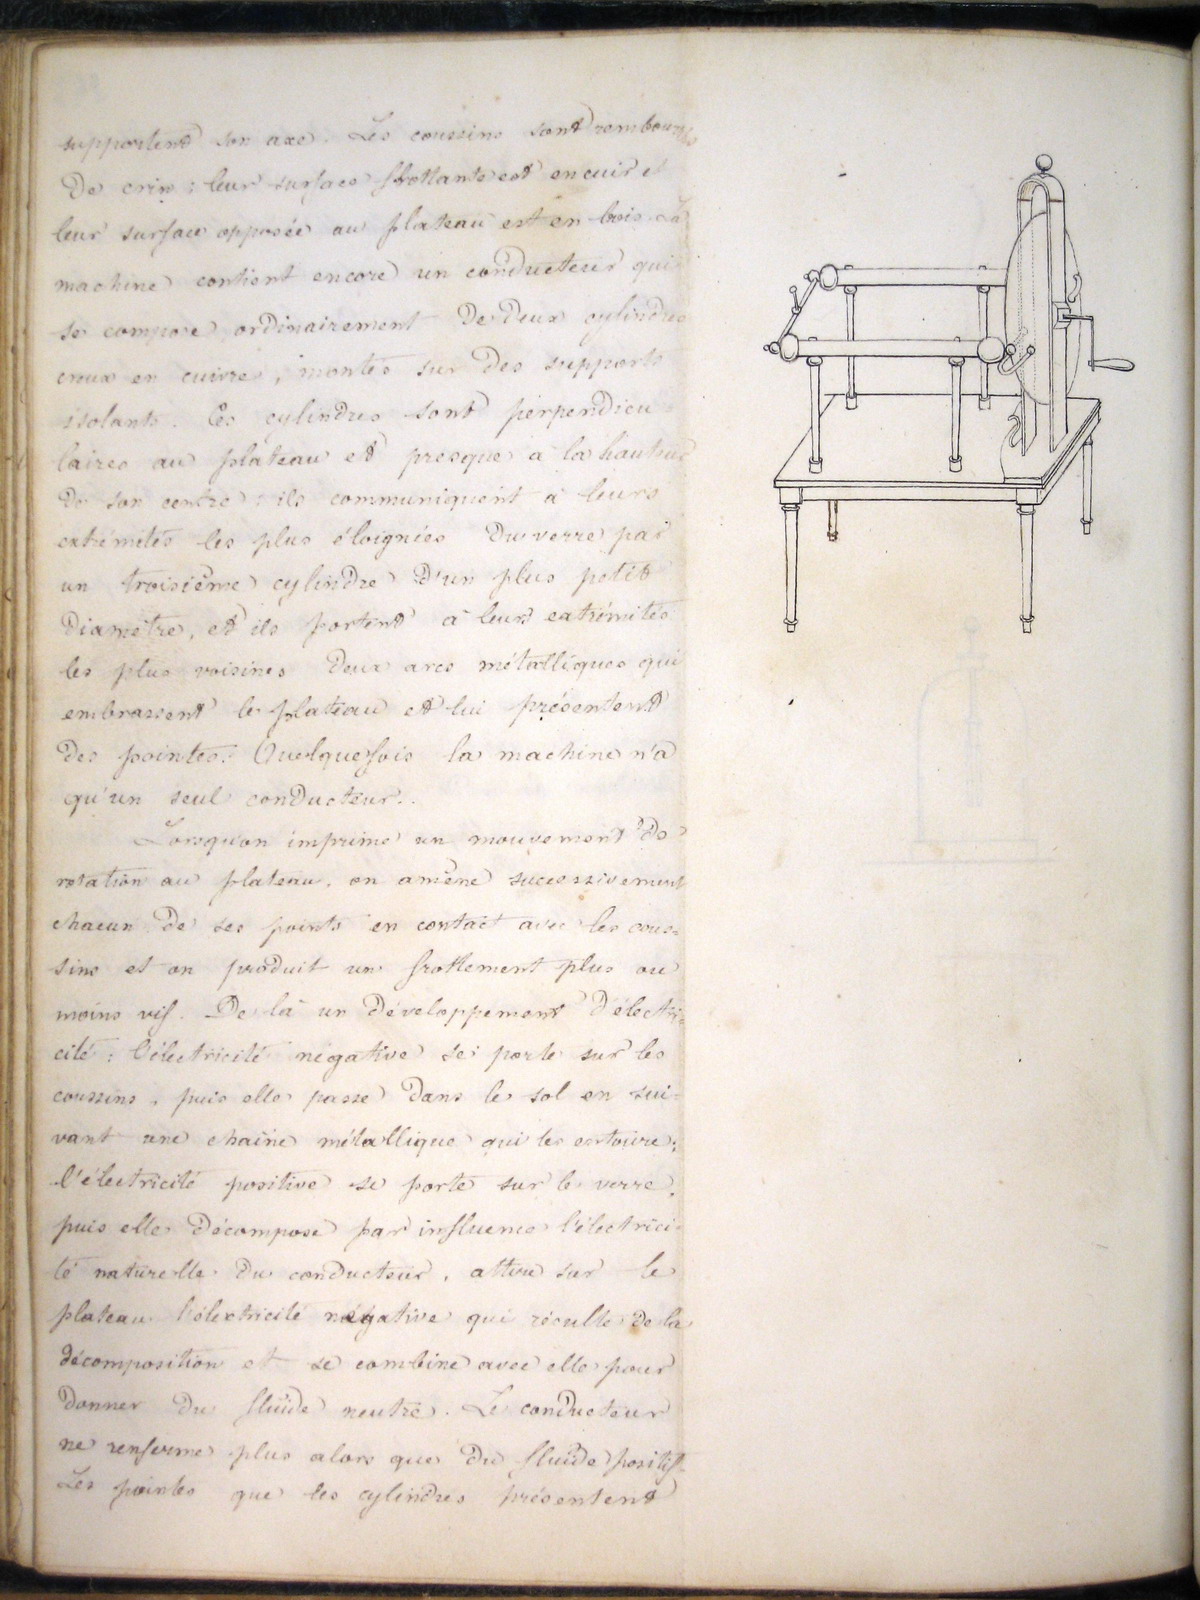 supportent son axe. Les coussins sont rembourrés
de crin ; leur surface frottante est en cuir et
leur surface opposée au plateau est en bois. La
machine contient encore un conducteur qui
se compose ordinairement de deux cylindres
creux en cuivre, montés sur des supports
isolants. Ces cylindres sont perpendicu
laires au plateau et presque à la hauteur
de son centre ; ils communiquent à leurs
extrémités les plus éloignées du verre par
un troisième cylindre d'un plus petit
diamètre, et ils portent à leurs extrémités
les plus voisines deux arcs métalliques qui
embrassent le plateau et lui présentent
des pointes. Quelquefois la machine n'a
qu'un seul conducteur..
Lorsqu'on imprime un mouvement de
rotation au plateau, on amène successivement
chacun de ses points en contact avec les cous=
sins et on produit un frottement plus ou
moins vif. De là un développement d'électri=
cité : l'électricité négative se porte sur les
coussins, puis elle passe dans le sol en sui=
vant une chaîne métallique qui les entoure ;
l'électricité positive se porte sur le verre,
puis elle décompose par influence l'électrici=
té naturelle du conducteur, attire sur le
plateau l'électricité négative qui résulte de la
décomposition et se combine avec elle pour
donner du fluide neutre. Le conducteur
ne renferme plus alors que du fluide positif.
Les pointes que les cylindres présentent